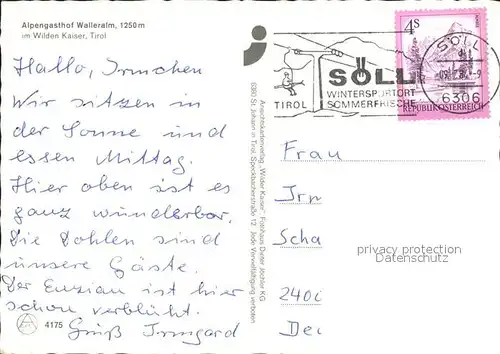 Alpengasthof Walleralm, 1250 m
im Wilden Kaiser, Tirol
Hallo, Irmchen
Wir sitzen in
der Sonne und
essen Mittag.
Hier oben ist es
ganz wunderbar.
Die Dohlen sind
unsere Gäste.
Der Enzian ist hier
schon verblüht.
Gruß Irmgard
4175
Ansichtskartenverlag „Wilder Kaiser", Fotohaus Dieter Jöchler KG
6380 St. Johann in Tirol, Speckbacherstraße 12 Jede Vervielfältigung verboten
TIROL
SÖLL
WINTERSPORTORT
SOMMERFRISCHE
4S
REPUBLIK ÖSTERREICH
SÖLL
6306
Frau
Irm
Scha
240
De
privacy protection
Datenschutz